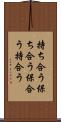 持ち合う保
ち合う保合
う持合う